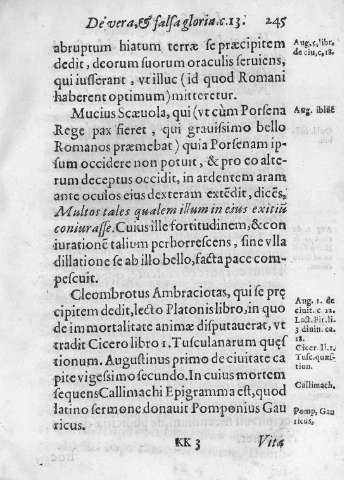 De vera, & falsa gloria. c. 13. 245
abruptum hiatum terræ se præcipitem
dedit, deorum suorum oraculis seruiens,
qui iusserant, vt illuc (id quod Romani
haberent optimum) mitteretur.
Mucius Scæuola, qui (vt cùm Porsena
Rege pax fieret, qui grauissimo bello
Romanos præmebat) quia Porsenam ip-
sum occidere non potuit, & pro eo alte-
rum deceptus occidit, in ardentem aram
ante oculos eius dexteram extēdit, dicēs,
Multos tales qualem illum in eius exitiū
coniurasse. Cuius ille fortitudinem, & con
iurationē talium perhorrescens, sine vlla
dillatione se ab illo bello, facta pace com-
pescuit.
Cleombrotus Ambraciotas, qui se prę
cipitem dedit, lecto Platonis libro, in quo
de immortalitate animæ disputauerat, vt
tradit Cicero libro 1. Tusculanarum quęs
tionum. Augustinus primo de ciuitate ca
pite vigessimo secundo. In cuius mortem
sequens Callimachi Epigramma est, quod
latino sermone donauit Pomponius Gau
ricus.
KK 3 Vita
Aug. 5. libr.
de ciu. c. 18.
Aug. ibidē
Aug. 1. de
ciuit. c 22.
Lact. Fir. li.
3 diuin. ca.
18.
Cicer. li. 1.
Tusc. quæs-
tion.
Callimach.
Pomp. Gau
ricus.